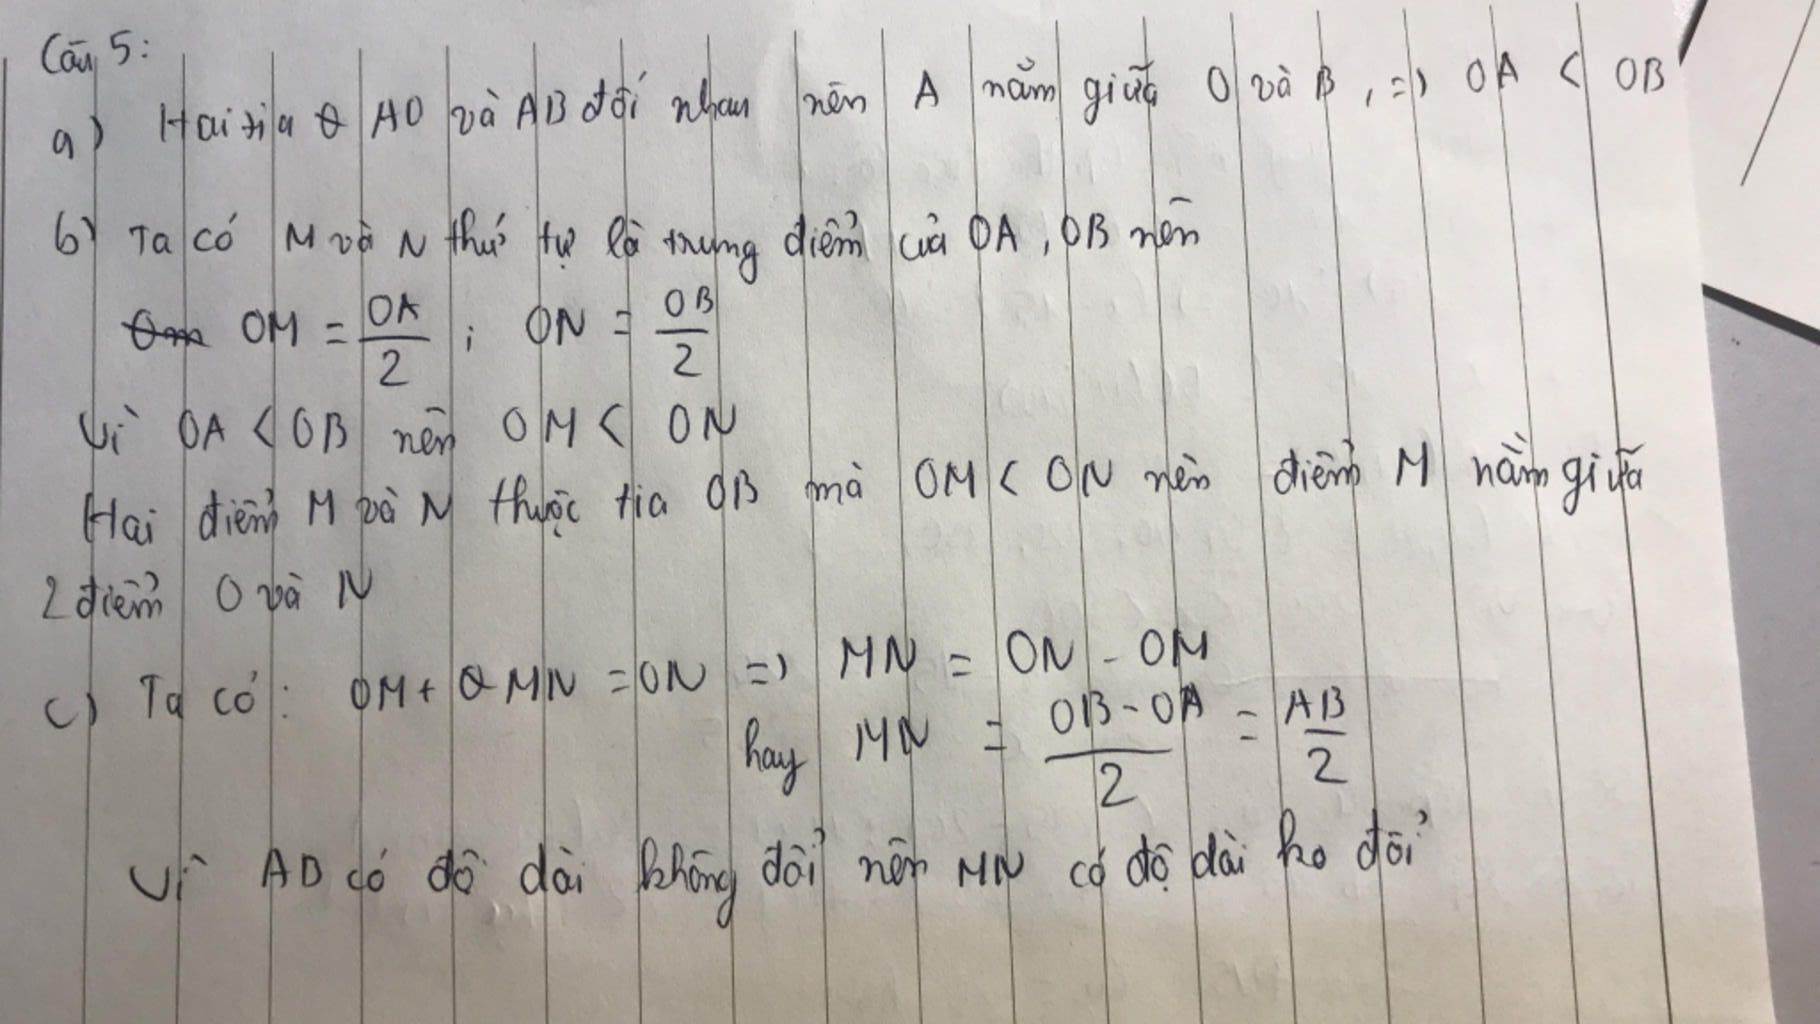 Câu 5:
a) Hai tia AO và AB đối nhau nên A nằm giữa O và B, => OA < OB
b) Ta có M và N thứ tự là trung điểm của OA, OB nên
OM = OA/2 ; ON = OB/2
Vì OA < OB nên OM < ON
Hai điểm M và N thuộc tia OB mà OM < ON nên điểm M nằm giữa
2 điểm O và N
c) Ta có: OM + MN = ON => MN = ON - OM
hay MN = OB - OA/2 = AB/2
Vì AB có độ dài không đổi nên MN có độ dài ko đổi